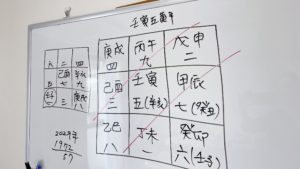 壬寅五黄年
庚戌 丙午 戊申
四 九 二
己酉 壬寅 甲辰
三 五(辛亥) 七(癸丑)
乙巳 丁未 癸卯
八 一 六(壬子)
六 二 四
己酉
七 九
五 三 庚戌
八
2029年
1972
57